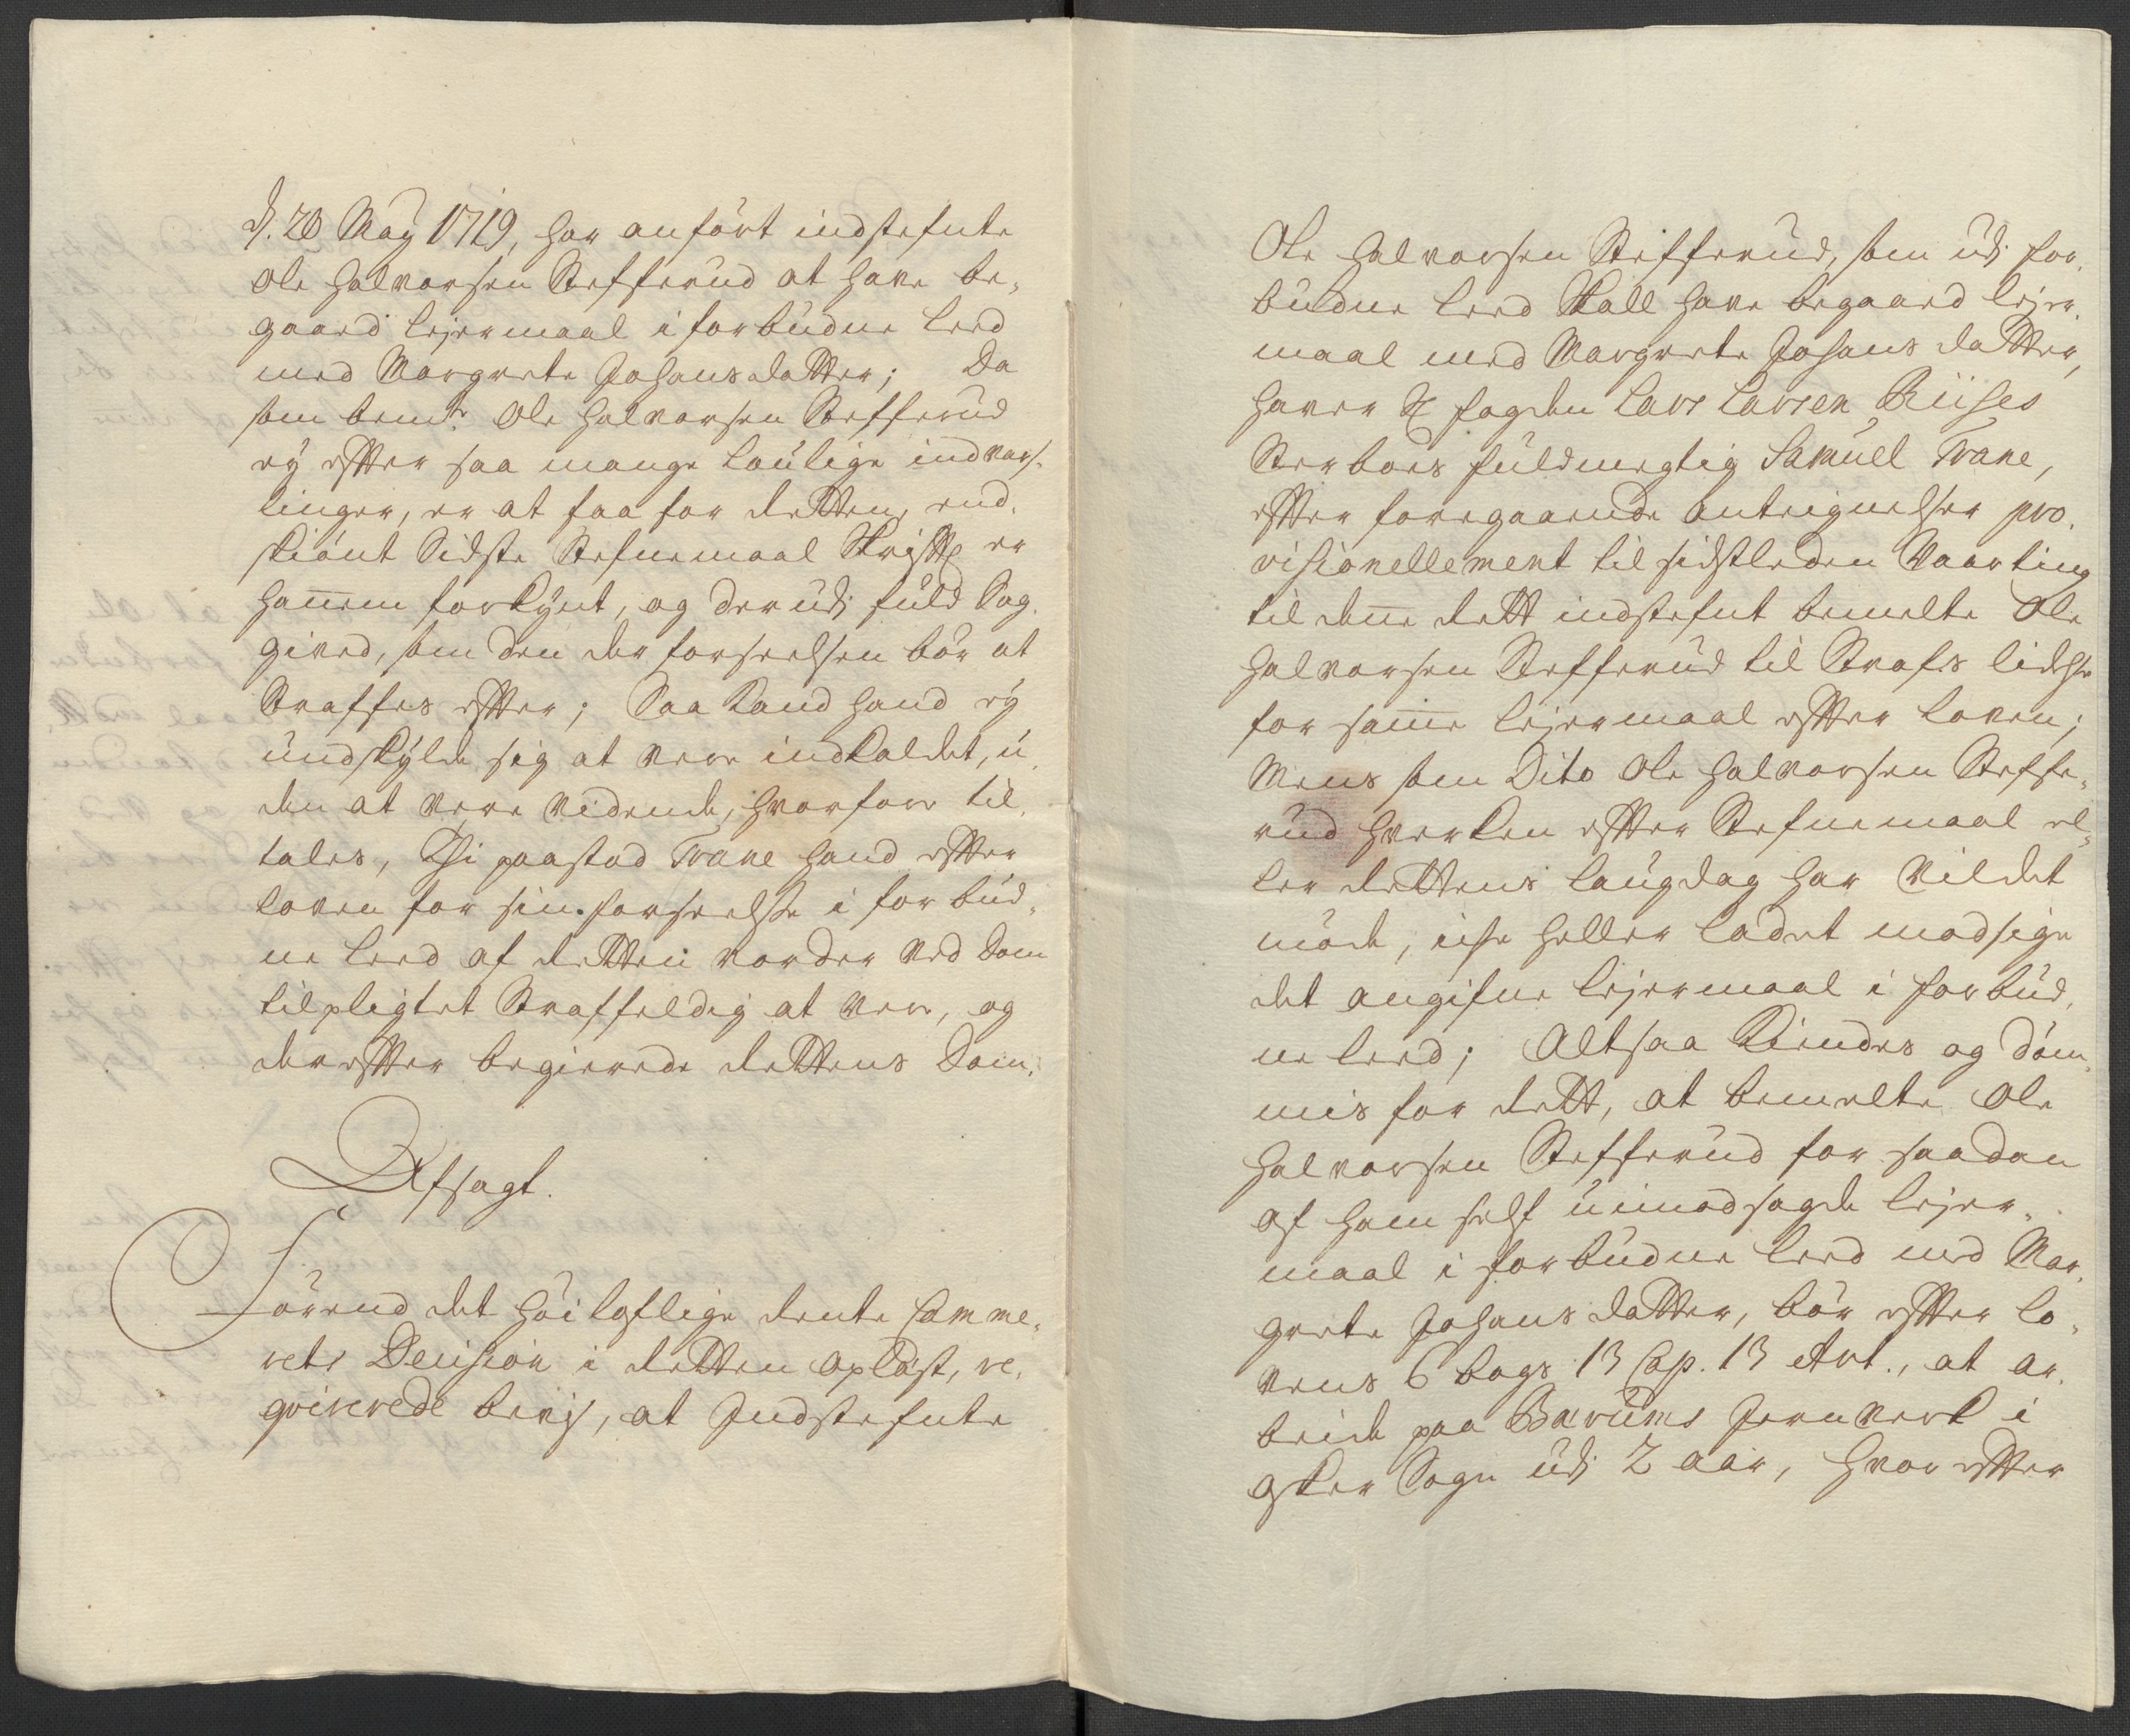 d. 20 Maÿ 1719, har anført indstefnte
Ole Halvorsen Stefferud at have be„
gaaed lejermaal i forbudne Leed
med Margrete Johansdatter; Da
som bemte. Ole Halvorsen Stefferud
eÿ efter saa mange lauligе indvars„
linger, er at faa for Retten, end„
skiønt Sidste Stefnemaal Skriftl: er
hannem forkÿnt, og derudj fuld Sag„
gived, som den der forseelsen bør at
Straffes efter; Saa kand hand eÿ
undskÿlde sig at vere indkaldet, u„
den at vere vidende, hvorfore til„
tales, Thi paastod Trane hand efter
loven for sin forseelse i forbud„
ne Leed af Retten vorder ved Dom
tilpligtet Straffeldig at vere, og
derefter begierede Rettens Dom.
Afsagt.
Førend det høi loflige Rente Camme„
rets Decision i Retten oplæst, re„
qvirerede bevis, at Indstefnte
Ole Halvorsen Stefferud, som udj for„
budne leed Skall have begaaed lejer„
maal med Margrete Johans datter,
haver Sl fogden Lars Larsen Riises
Sterboes fuldmegtig Samuel Trane,
efter foregaaende antegnelser pro„
visionellement til sidstleden Vaarting
til denne Rett indstefnt bemelte Ole
Halvorsen Stefferud til Strafs lidelse
for samme lejermaal efter loven;
Mens som Dito Ole Halvorsen Steffe„
rud hverken efter Stefnemaal el„
ler Rettens laugdag har vildet
møde, icke heller ladet modsige
det angifne lejermaal i forbud„
ne leed; Altsaa Kiendes og døm„
mis for Rett, at bemelte Ole
Halvorsen Stefferud for saadan
af ham self uimodsagde lejer„
maal i forbudne leed med Mar„
grete Johans datter, bør efter lo„
vens 6 bogs 13 Cap. 13 Art., at ar„
beide paa Bærums Jernverk i
Asker Sogn udj 2 aar, hvorefter